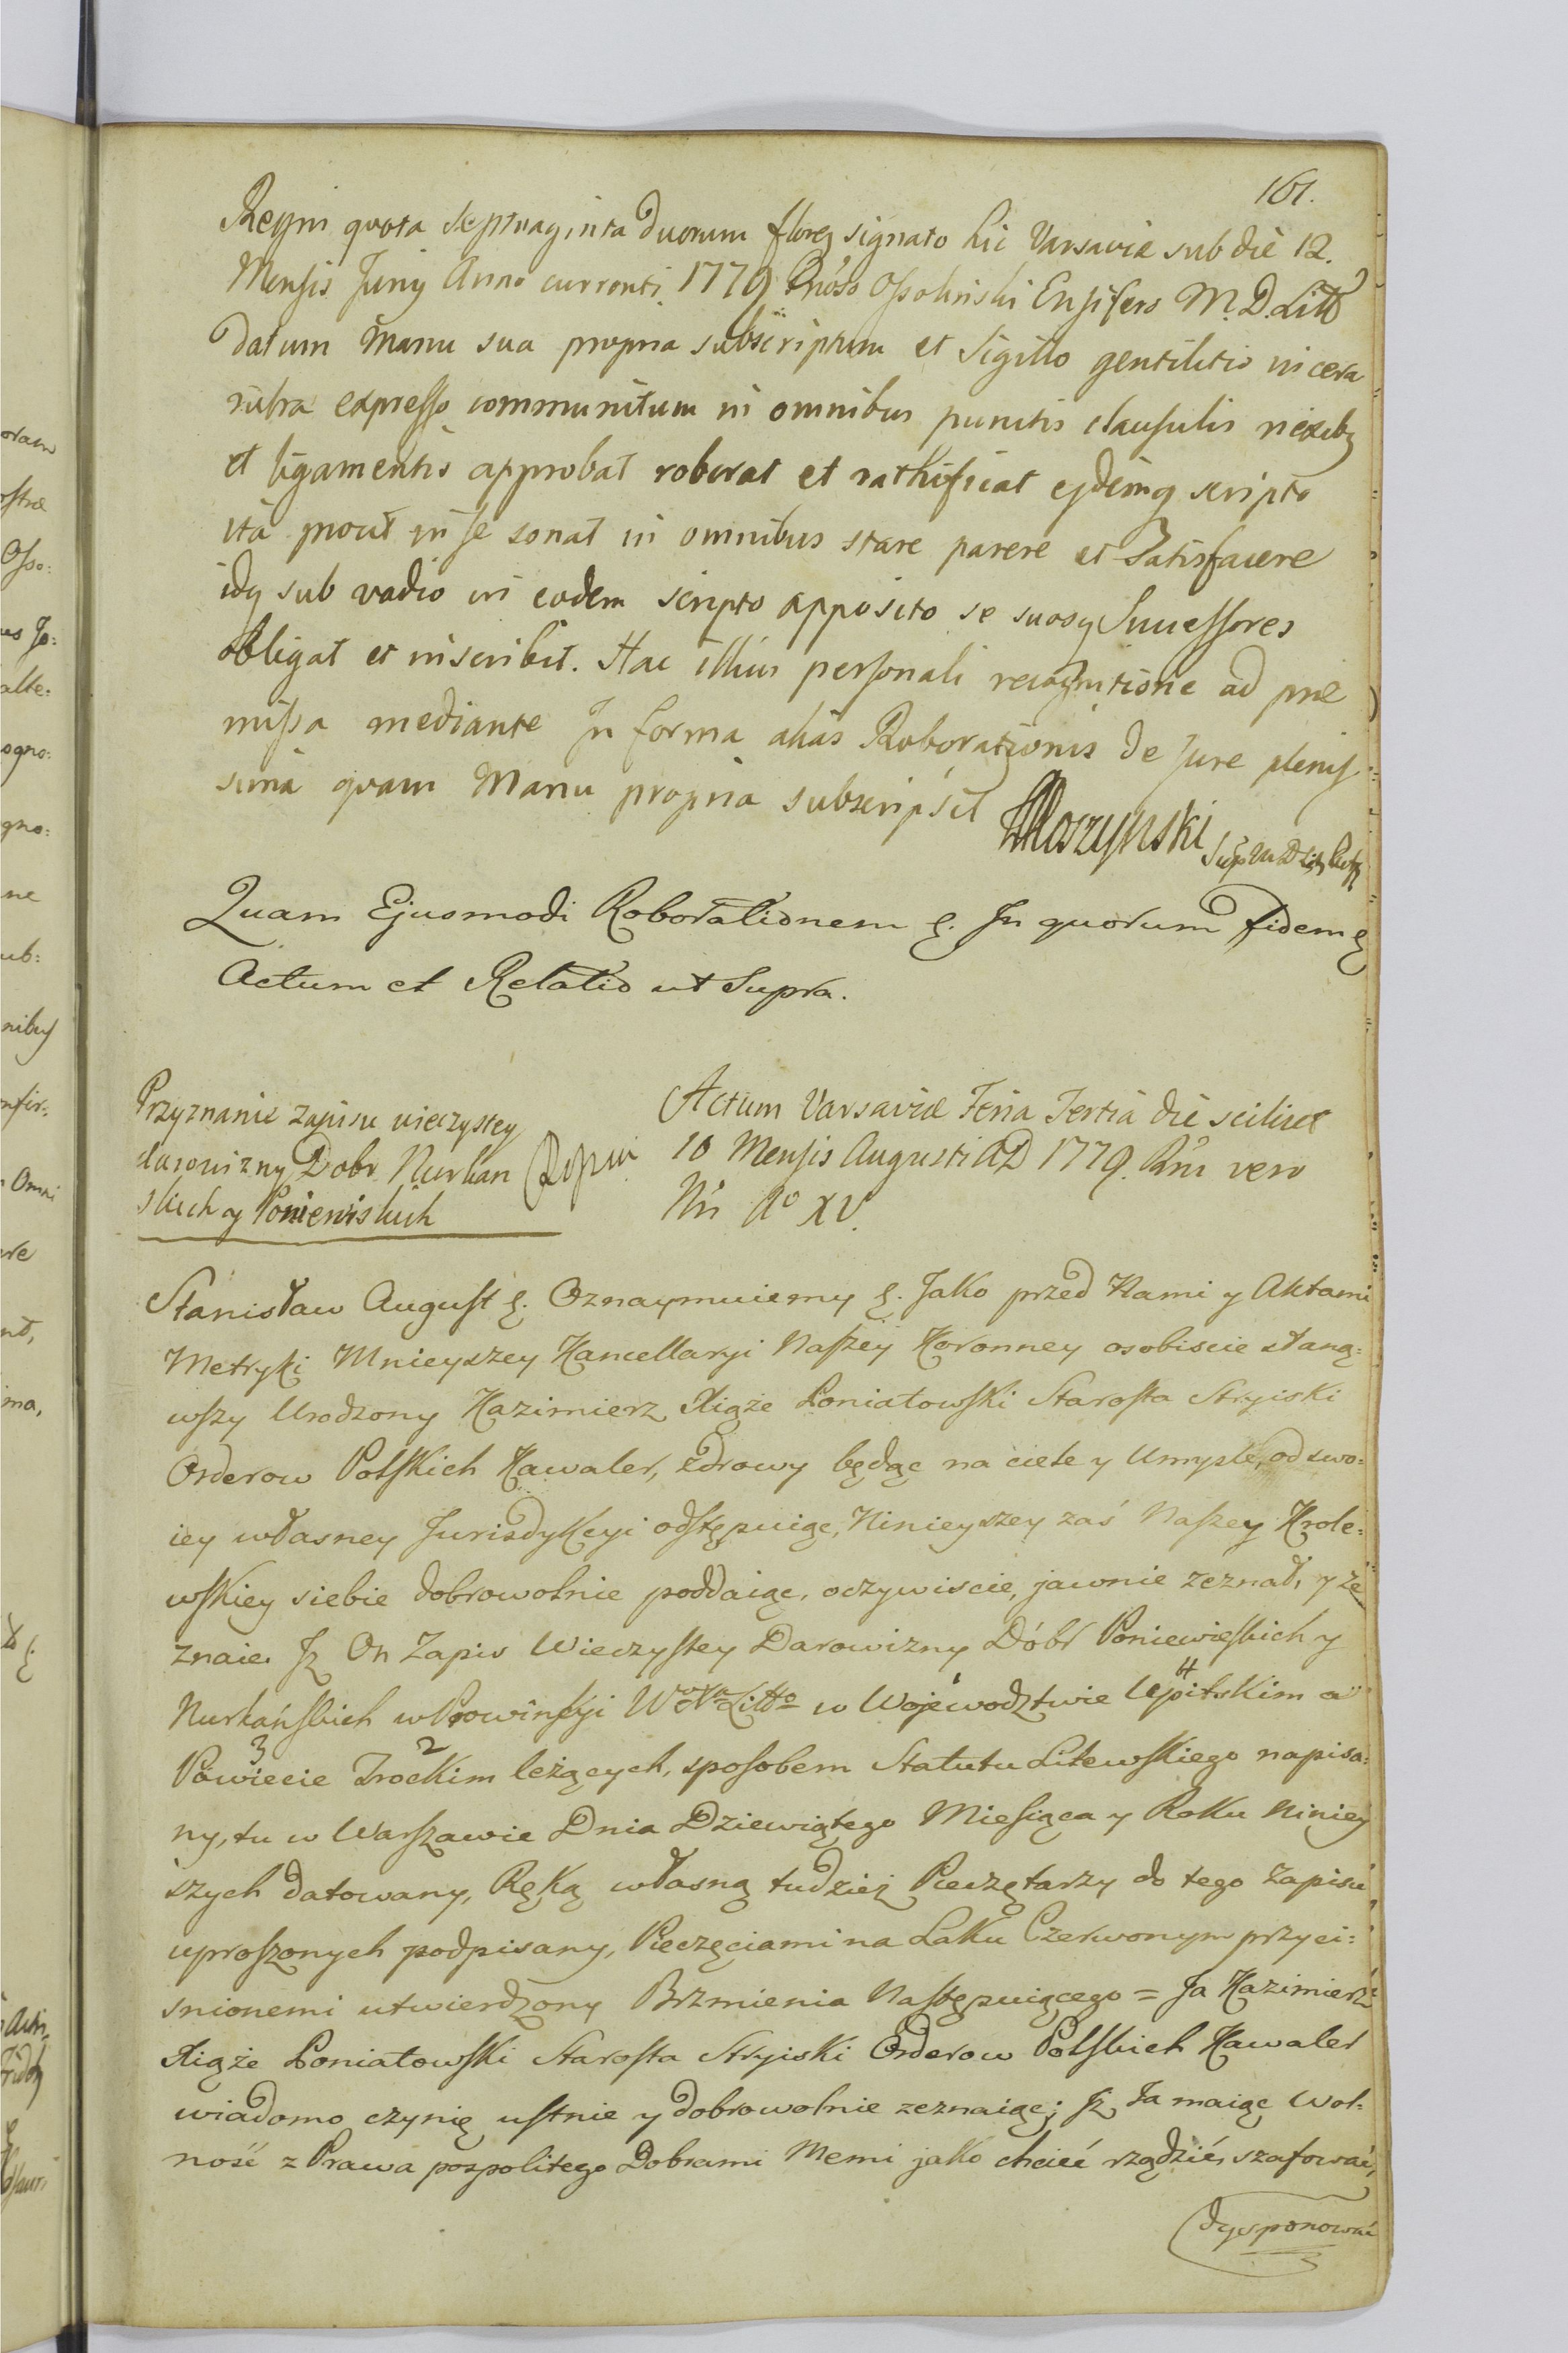 161.
Regni quota septuaginta duorum floreq signato hic Varsaviæ sub die 12.
Mensis Junij Anno currenti 1779 Gnoso Ossolinski Ensifero M. D. Litt
datum Manu sua propria subscriptum et Sigillo gentilitio in cera
rubra expresso communitum in omnibus punctis clausulis nexibq
et ligamentis approbat roborat et rathificat ejdemq scripto
ita prout in se sonat in omnibus stare parere et Satisfacere
idq sub vadio in eodem scripto apposito se suosq Successores
obligat et inscribit. Hac illius personali recognitione ad præ
missa mediante In forma alias Roborationis de jure plenis
sima quam Manu propria subscripsit Moszynski
Quam Ejusmodi Roborationem &. In quorum fidem &
Actum et Relatio ut Supra.
Przyznanie zapisu wieczystey
darowizny Dobr Nurkan
skich y Poniewiskich
Actum Varsaviæ Feria Tertia die scilicet
10 Mensis Augusti AD 1779. Rni vero
Nri Ao XV.
Stanisław August &. Oznaymuiemy &. Jako przed Nami y Aktami
Metryki Mnieyszey Kancellaryi Naszey Koronney osobiscie staną=
wszy Urodzony Kazimierz Xiąże Poniatowski Starosta Stryiski
Orderow Polskich Kawaler, zdrowy będąc na ciele y Umysle, od swo=
iey własney Jurisdykcyi odstępuiąc, Ninieyszey zaś Naszey Krole=
wskiey siebie dobrowolnie poddaiąc, oczywiscie, jawnie zeznał, y ze
znaie. Jż On Zapis Wieczystey Darowizny Dóbr Poniewieskich y
Nurkańskich w Prowincyi W. X. Litto w Wojewodztwie 4
3 2
Powiecie Trockim leżących, sposobem Statutu Litewskiego napisa=
ny, tu w Warszawie Dnia Dziewiątego Miesiąca y Roku niniey
szych datowany, Ręką własną tudzież Pieczętarzy do tego Zapisu
uproszonych podpisany, Pieczęciami na Laku Czerwonym przyci=
snionemi utwierdzony Brzmienia Następuiącego = Ja Kazimierz
Xiąże Poniatowski Starosta Stryiski Orderow Polskich Kawaler
wiadomo czynię ustnie y dobrowolnie zeznaiąc; Jż Ja maiąc wol=
ność z Prawa pospolitego Dobrami Memi jako chcieć rządzić, szafować,
dysponować